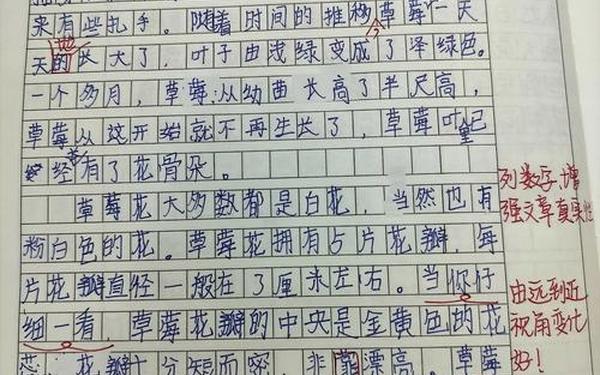 来有些扎手。随着时间的推移草莓一天
地
天的长大了，叶子由浅绿变成了泽绿色。
一个多月，草莓从幼曲长高了半尺高，
草莓从这开始就不再生长了，草莓叶已
经有了花骨朵。
草莓花大多数都是白花，当然也有
粉白色的花。草莓花拥有5片花瓣，每
片花瓣直经一般在3厘米左右。当你仔
细一看，草莓花瓣的中央是金黄色的花
芯，花瓣十分短而密，非常漂亮。草莓
列数字增
强文章真实性
由远到近
视角变化
好！